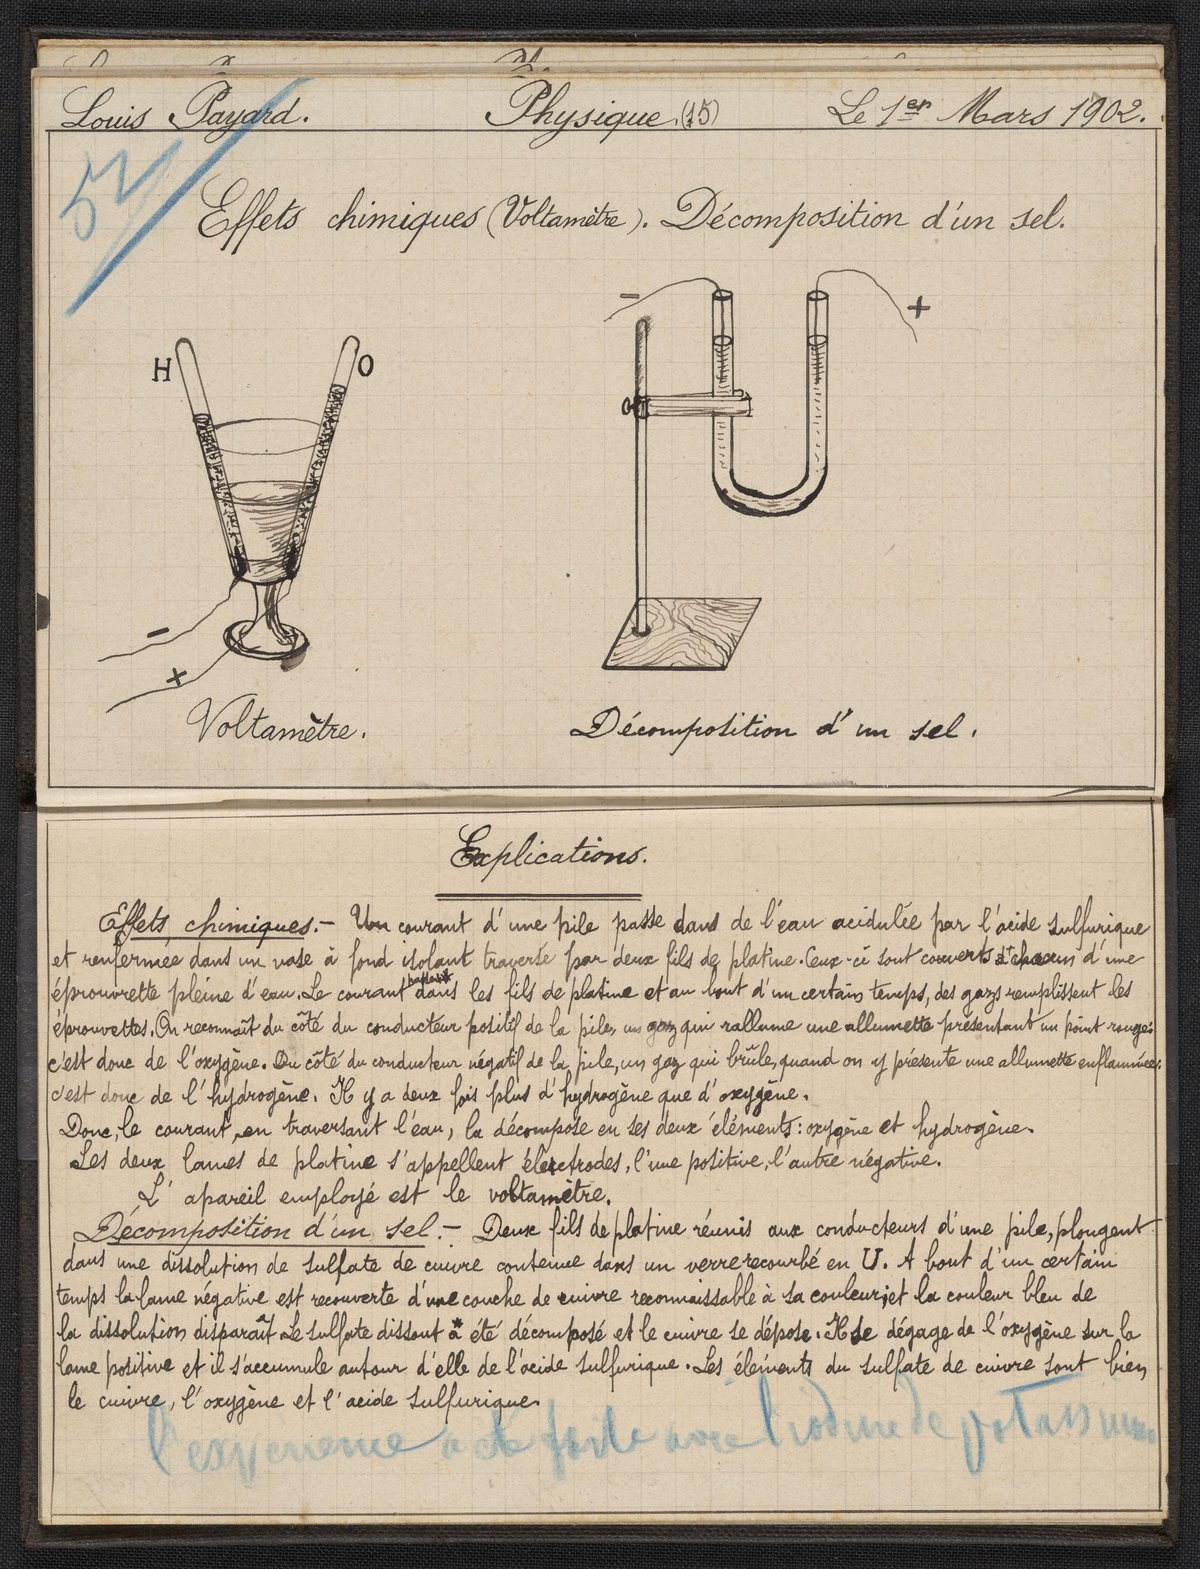 Louis Payard. Physique.(15) Le 1er Mars 1902.
Effets chimiques (Voltamètre). Décomposition d'un sel.
- +
H O
-
+
Voltamètre. Décomposition d'un sel.
Explications.
Effets chimiques.- Un courant d'une pile passe dans de l'eau acidulée par l'acide sulfurique
et renfermée dans un vase à fond isolant traversé par deux fils de platine. Ceux-ci sont couverts chacun d'une
éprouvette pleine d'eau. Le courant dans les fils de platine et au bout d'un certain temps, des gazs remplissent les
éprouvettes. On reconnaît du côté du conducteur positif de la pile, un gaz qui rallume une allumette présentant un point rouge:
c'est donc de l'oxygène. Du côté du conducteur négatif de la pile, un gaz qui brûle, quand on y présente une allumette enflammée:
c'est donc de l'hydrogène. Il y a deux fois plus d'hydrogène que d'oxygène.
Donc, le courant, en traversant l'eau, la décompose en ses deux éléments: oxygène et hydrogène.
Les deux lames de platine s'appellent électrodes, l'une positive, l'autre négative.
L'apareil employé est le voltamètre.
Décomposition d'un sel.- Deux fils de platine réunis aux conducteurs d'une pile, plongent
dans une dissolution de sulfate de cuivre contenue dans un verre recourbé en U. A bout d'un certain
temps la lame négative est recouverte d'une couche de cuivre reconnaissable à sa couleur; et la couleur bleu de
la dissolution disparaît. Le sulfate dissout a été décomposé et le cuivre se dépose. Il se dégage de l'oxygène sur la
lame positive et il s'accumule autour d'elle de l'acide sulfurique. Les éléments du sulfate de cuivre sont bien
le cuivre, l'oxygène et l'acide sulfurique.
l'expérience a été faite avec l'iodure de potassium